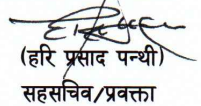 (हरि प्रसाद पन्थी)
सहसचिव/प्रवक्ता